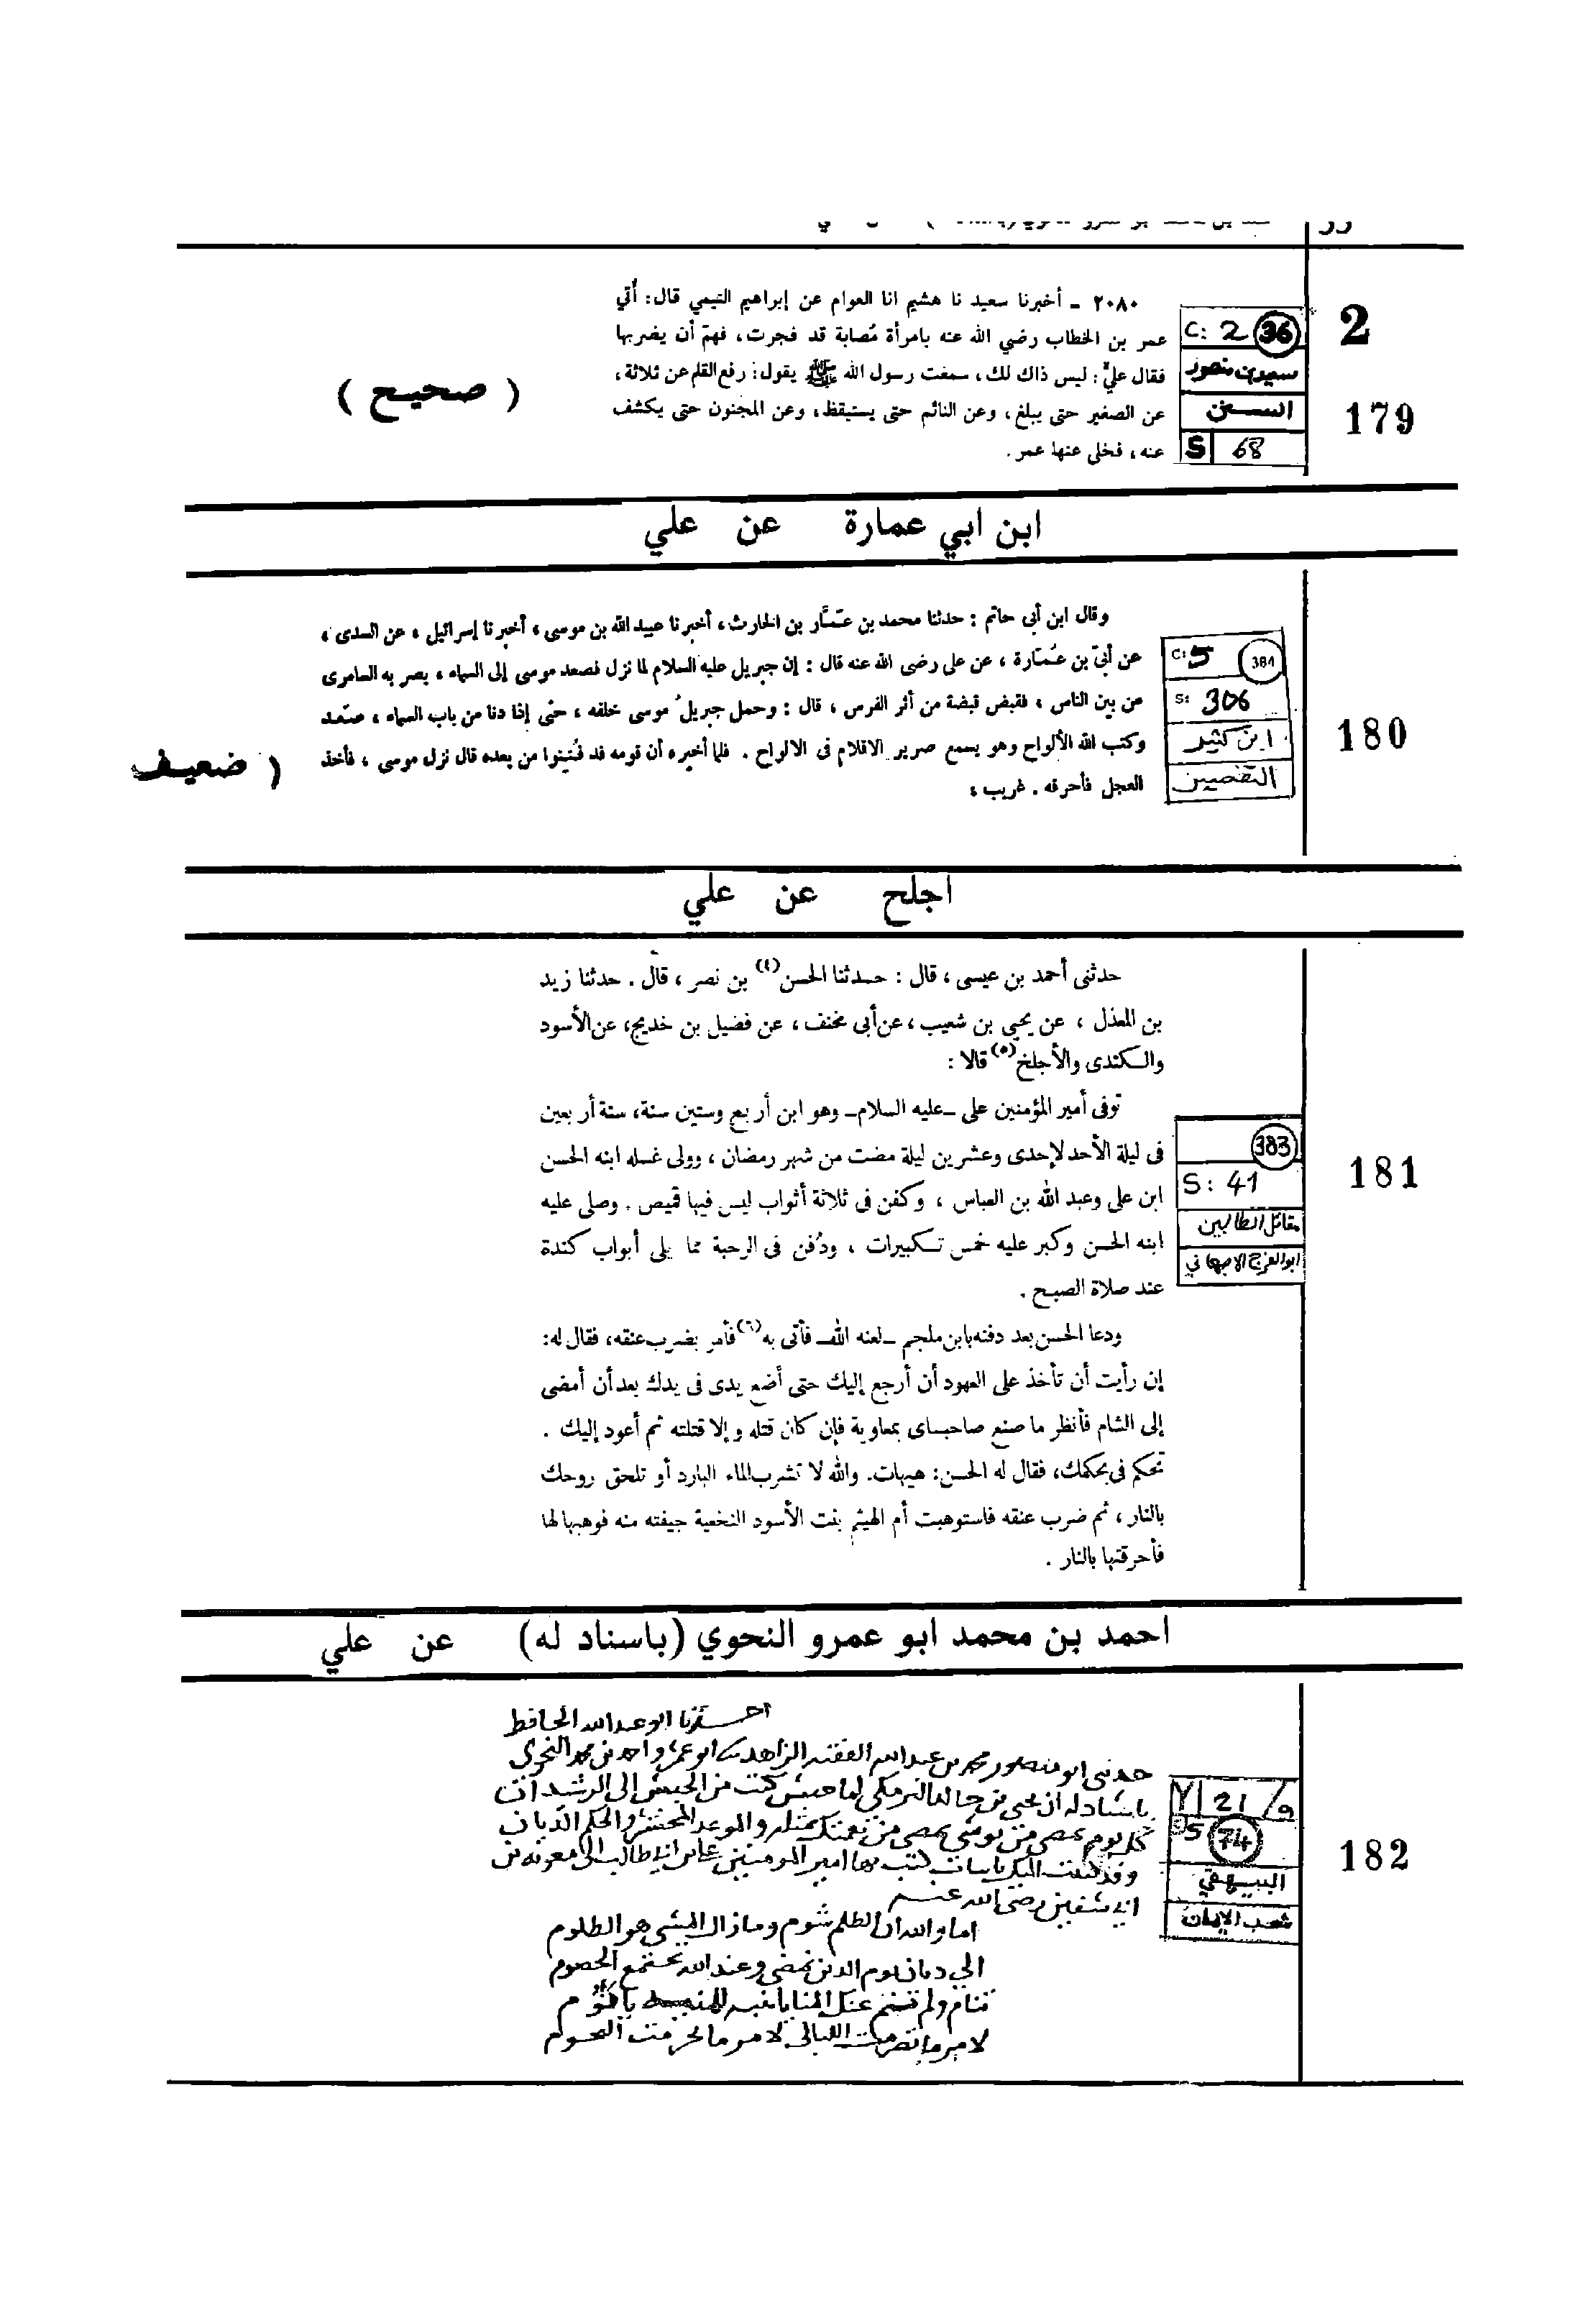 2
179
C: 2 36
سعيد بن منصور
السنن
S 68
٢٠٨٠ - أخبرنا سعيد نا هشيم انا العوام عن إبراهيم التيمي قال: أُتي
عمر بن الخطاب رضي الله عنه بامرأة مُصابة قد فجرت، فهمّ أن يضربها
فقال عليّ: ليس ذاك لك، سمعت رسول الله ﷺ يقول: رفع القلم عن ثلاثة،
عن الصغير حتى يبلغ، وعن النائم حتى يستيقظ، وعن المجنون حتى يكشف
عنه، فخلى عنها عمر.
( صحيح )
ابن ابي عمارة عن علي
180
C: 5 384
S: 306
ابن كثير
التفسير
وقال ابن أبى حاتم : حدثنا محمد بن عمَّار بن الحارث، أخبرنا عبيد الله بن موسى، أخبرنا إسرائيل، عن السدى،
عن أبىّ بن عُمَارة، عن على رضى الله عنه قال : إن جبريل عليه السلام لما نزل فصعد موسى إلى السماء، بصر به السامرى
من بين الناس، فقبض قبضة من أثر الفرس، قال : وحمل جبريلُ موسى خلفه، حتى إذا دنا من باب السماء، صَعد
وكتب الله الألواح وهو يسمع صرير الاقلام فى الالواح. فلما أخبره أن قومه قد فُتِنوا من بعده قال نزل موسى، فأخذ
العجل فأحرقه. غريب،
( ضعيف
اجلح عن علي
181
383
S: 41
مقاتل الطالبين
ابو الفرج الاصبهاني
حدثنى أحمد بن عيسى، قال : حدثنا الحسن(٤) بن نصر، قال. حدثنا زيد
بن المعذل، عن يحيى بن شعيب، عن أبى مخنف، عن فضيل بن خديج، عن الأسود
والكندى والأجلخ(٥) قالا :
توفى أمير المؤمنين على -عليه السلام- وهو ابن أربع وستين سنة، سنة أربعين
فى ليلة الأحد لإحدى وعشرين ليلة مضت من شهر رمضان، وولى غسله ابنه الحسن
ابن على وعبد الله بن العباس، وكفن فى ثلاثة أثواب ليس فيها قميص. وصلى عليه
ابنه الحسن وكبر عليه خمس تكبيرات، ودُفن فى الرحبة مما يلى أبواب كندة
عند صلاة الصبح.
ودعا الحسن بعد دفنه بابن ملجم -لعنه الله- فأتى به(٦) فأمر بضرب عنقه، فقال له:
إن رأيت أن تأخذ على العهود أن أرجع إليك حتى أضع يدى فى يدك بعد أن أمضى
إلى الشام فأنظر ما صنع صاحباى بمعاوية فإن كان قتله وإلا قتلته ثم أعود إليك.
تحكم فى بحكمك، فقال له الحسن: هيهات. والله لا تشرب الماء البارد أو تلحق روحك
بالنار، ثم ضرب عنقه فاستوهبت أم الهيثم بنت الأسود النخعية جيفته منه فوهبها لها
فأحرقتها بالنار.
احمد بن محمد ابو عمرو النحوي (باسناد له) عن علي
182
21
74
البيهقي
شعب الإيمان
اخبرنا ابو عبد الله الحافظ
حدثني ابو منصور محمد بن عبد الله الفقيه الزاهد ابو عمرو احمد بن محمد النحوي
باسناد له ان يحيى بن خالد البرمكي لما حبس كتب من الحبس إلى الرشيد ان
كل يوم يمضي من بوسي يمضي من نعمتك مثله والموعد المحشر والحكم الديان
وقد كتبت اليك بابيات كتب بها امير المومنين علي بن ابي طالب الى معوية بن
ابي سفين رضي الله عنه
اما والله ان الظلم شوم وما زال المسي هو الظلوم
الى ديان يوم الدين نمضي وعند الله تجتمع الخصوم
تنام ولم تنم عنك المنايا تنبه للمنية يا نؤوم
لامر ما تصرمت الليالي لامر ما تحركت النجوم